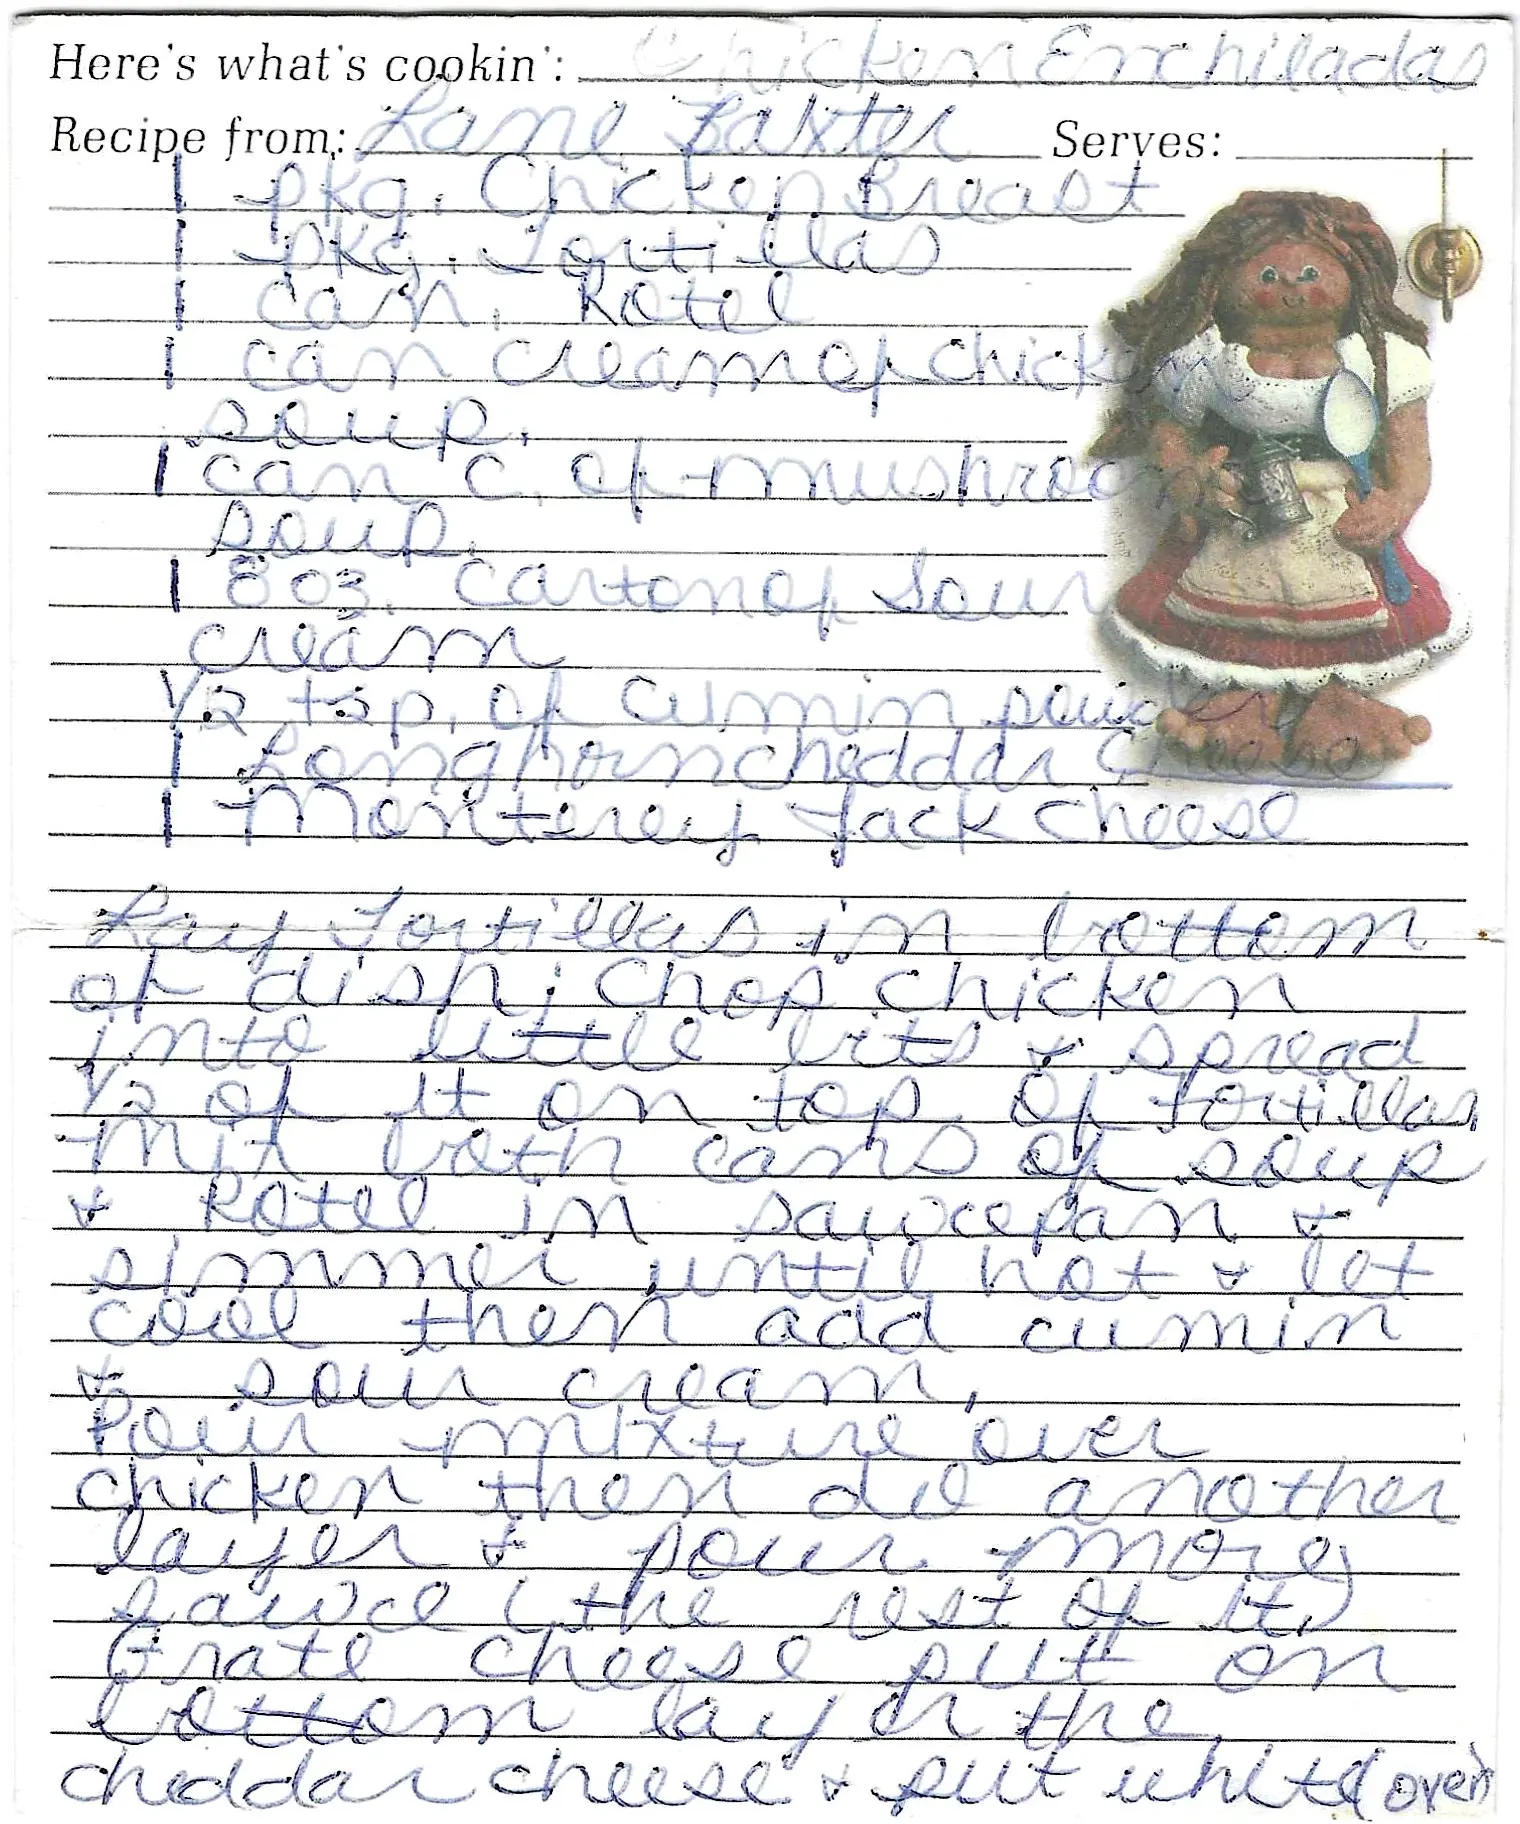 Here's what's cookin': Chicken Enchiladas
Recipe from: Lane Baxter Serves:
1 pkg. Chicken Breast
1 pkg. Tortillas
1 can. Rotel
1 can cream of chicken
soup.
1 can c. of mushroom
soup.
1 8 oz. carton of Sour
cream
1/2 tsp. of cumin powder
1 Longhorn cheddar Cheese
1 Monterey Jack cheese
Lay Tortillas in bottom
of dish; Chop chicken
into little bits & spread
1/2 of it on top of tortillas
Mix both cans of soup
& Rotel in sauce pan &
simmer until hot & let
cool then add cumin
& sour cream,
Pour mixture over
chicken then do another
layer & pour more
sauce (the rest of it)
Grate cheese put on
bottom layer the
cheddar cheese & put white (over)